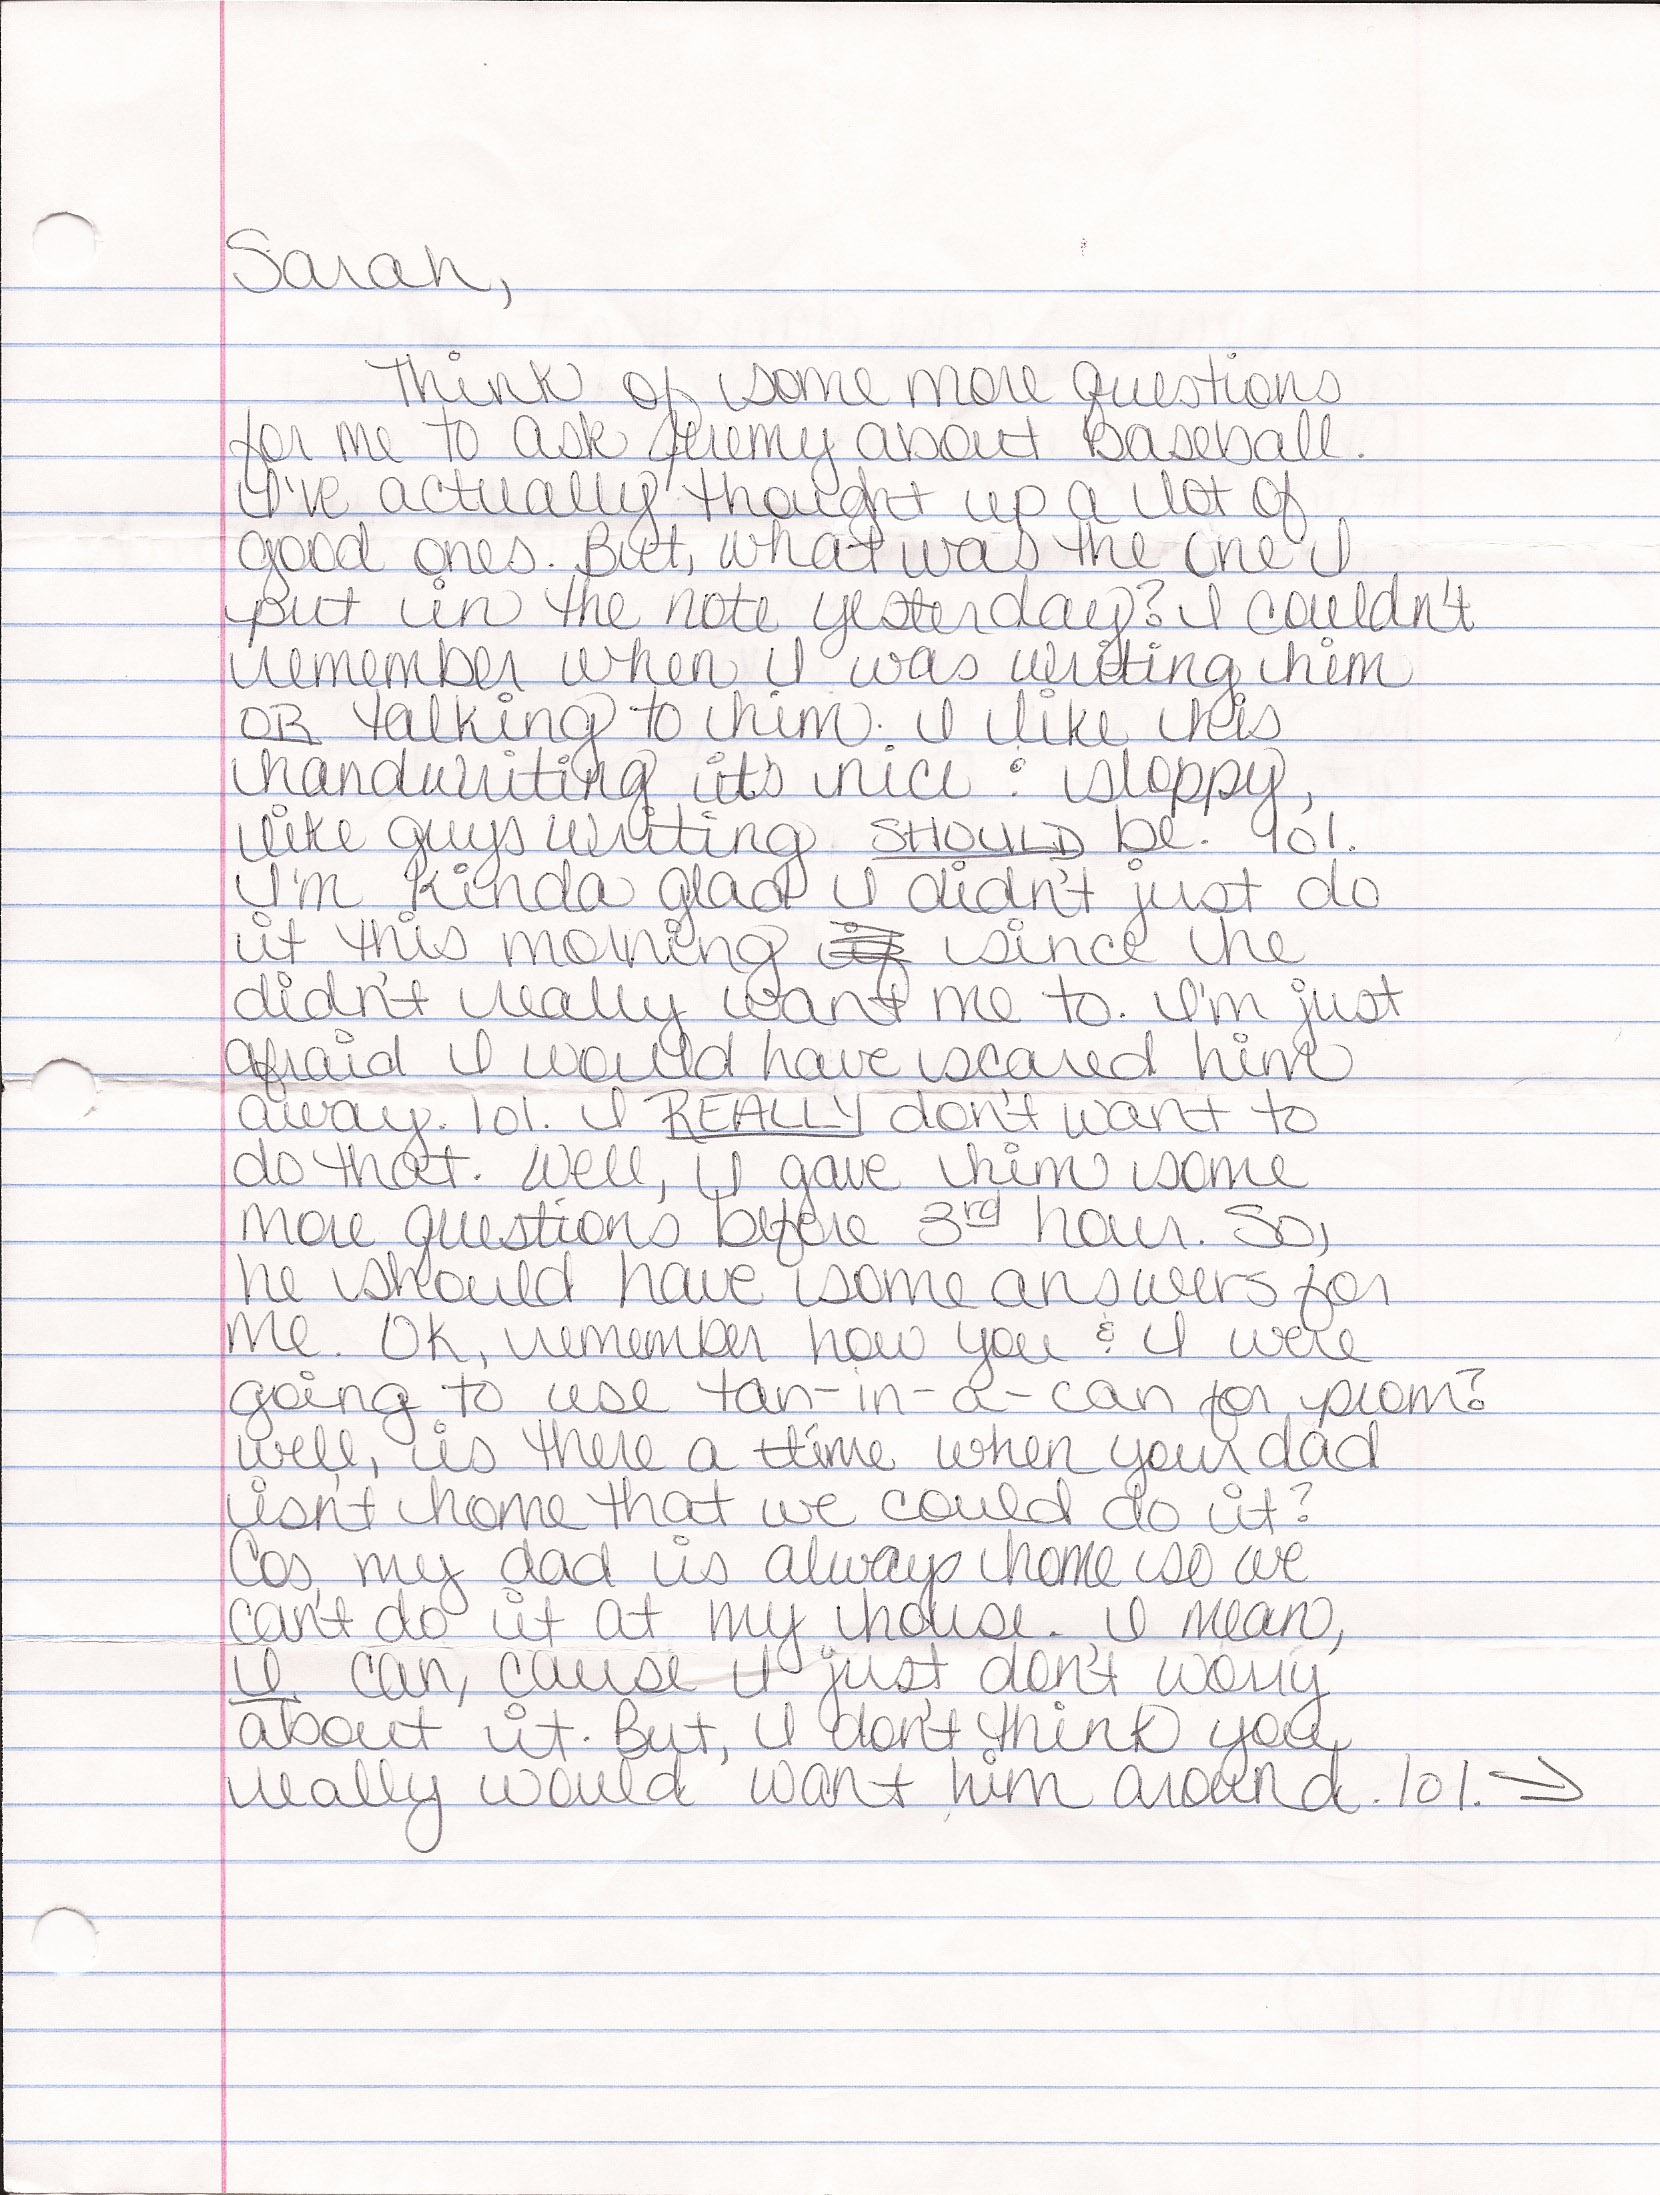 Sarah,
Think of some more questions
for me to ask Jeremy about Baseball.
I've actually thought up a lot of
good ones. But, what was the one I
put in the note yesterday? I couldn't
remember when I was writing him
OR talking to him. I like his
handwriting it's nice & sloppy,
like guys writing SHOULD be. lol.
I'm kinda glad I didn't just do
it this morning since he
didn't really want me to. I'm just
afraid I would have scared him
away. lol. I REALLY don't want to
do that. Well, I gave him some
more questions before 3rd hour. So,
he should have some answers for
me. OK, remember how you & I were
going to use tan-in-a-can for prom?
well, is there a time when your dad
isn't home that we could do it?
Cos my dad is always home so we
can't do it at my house. I mean,
I can, cause I just don't worry
about it. But, I don't think you
really would want him around. lol. →